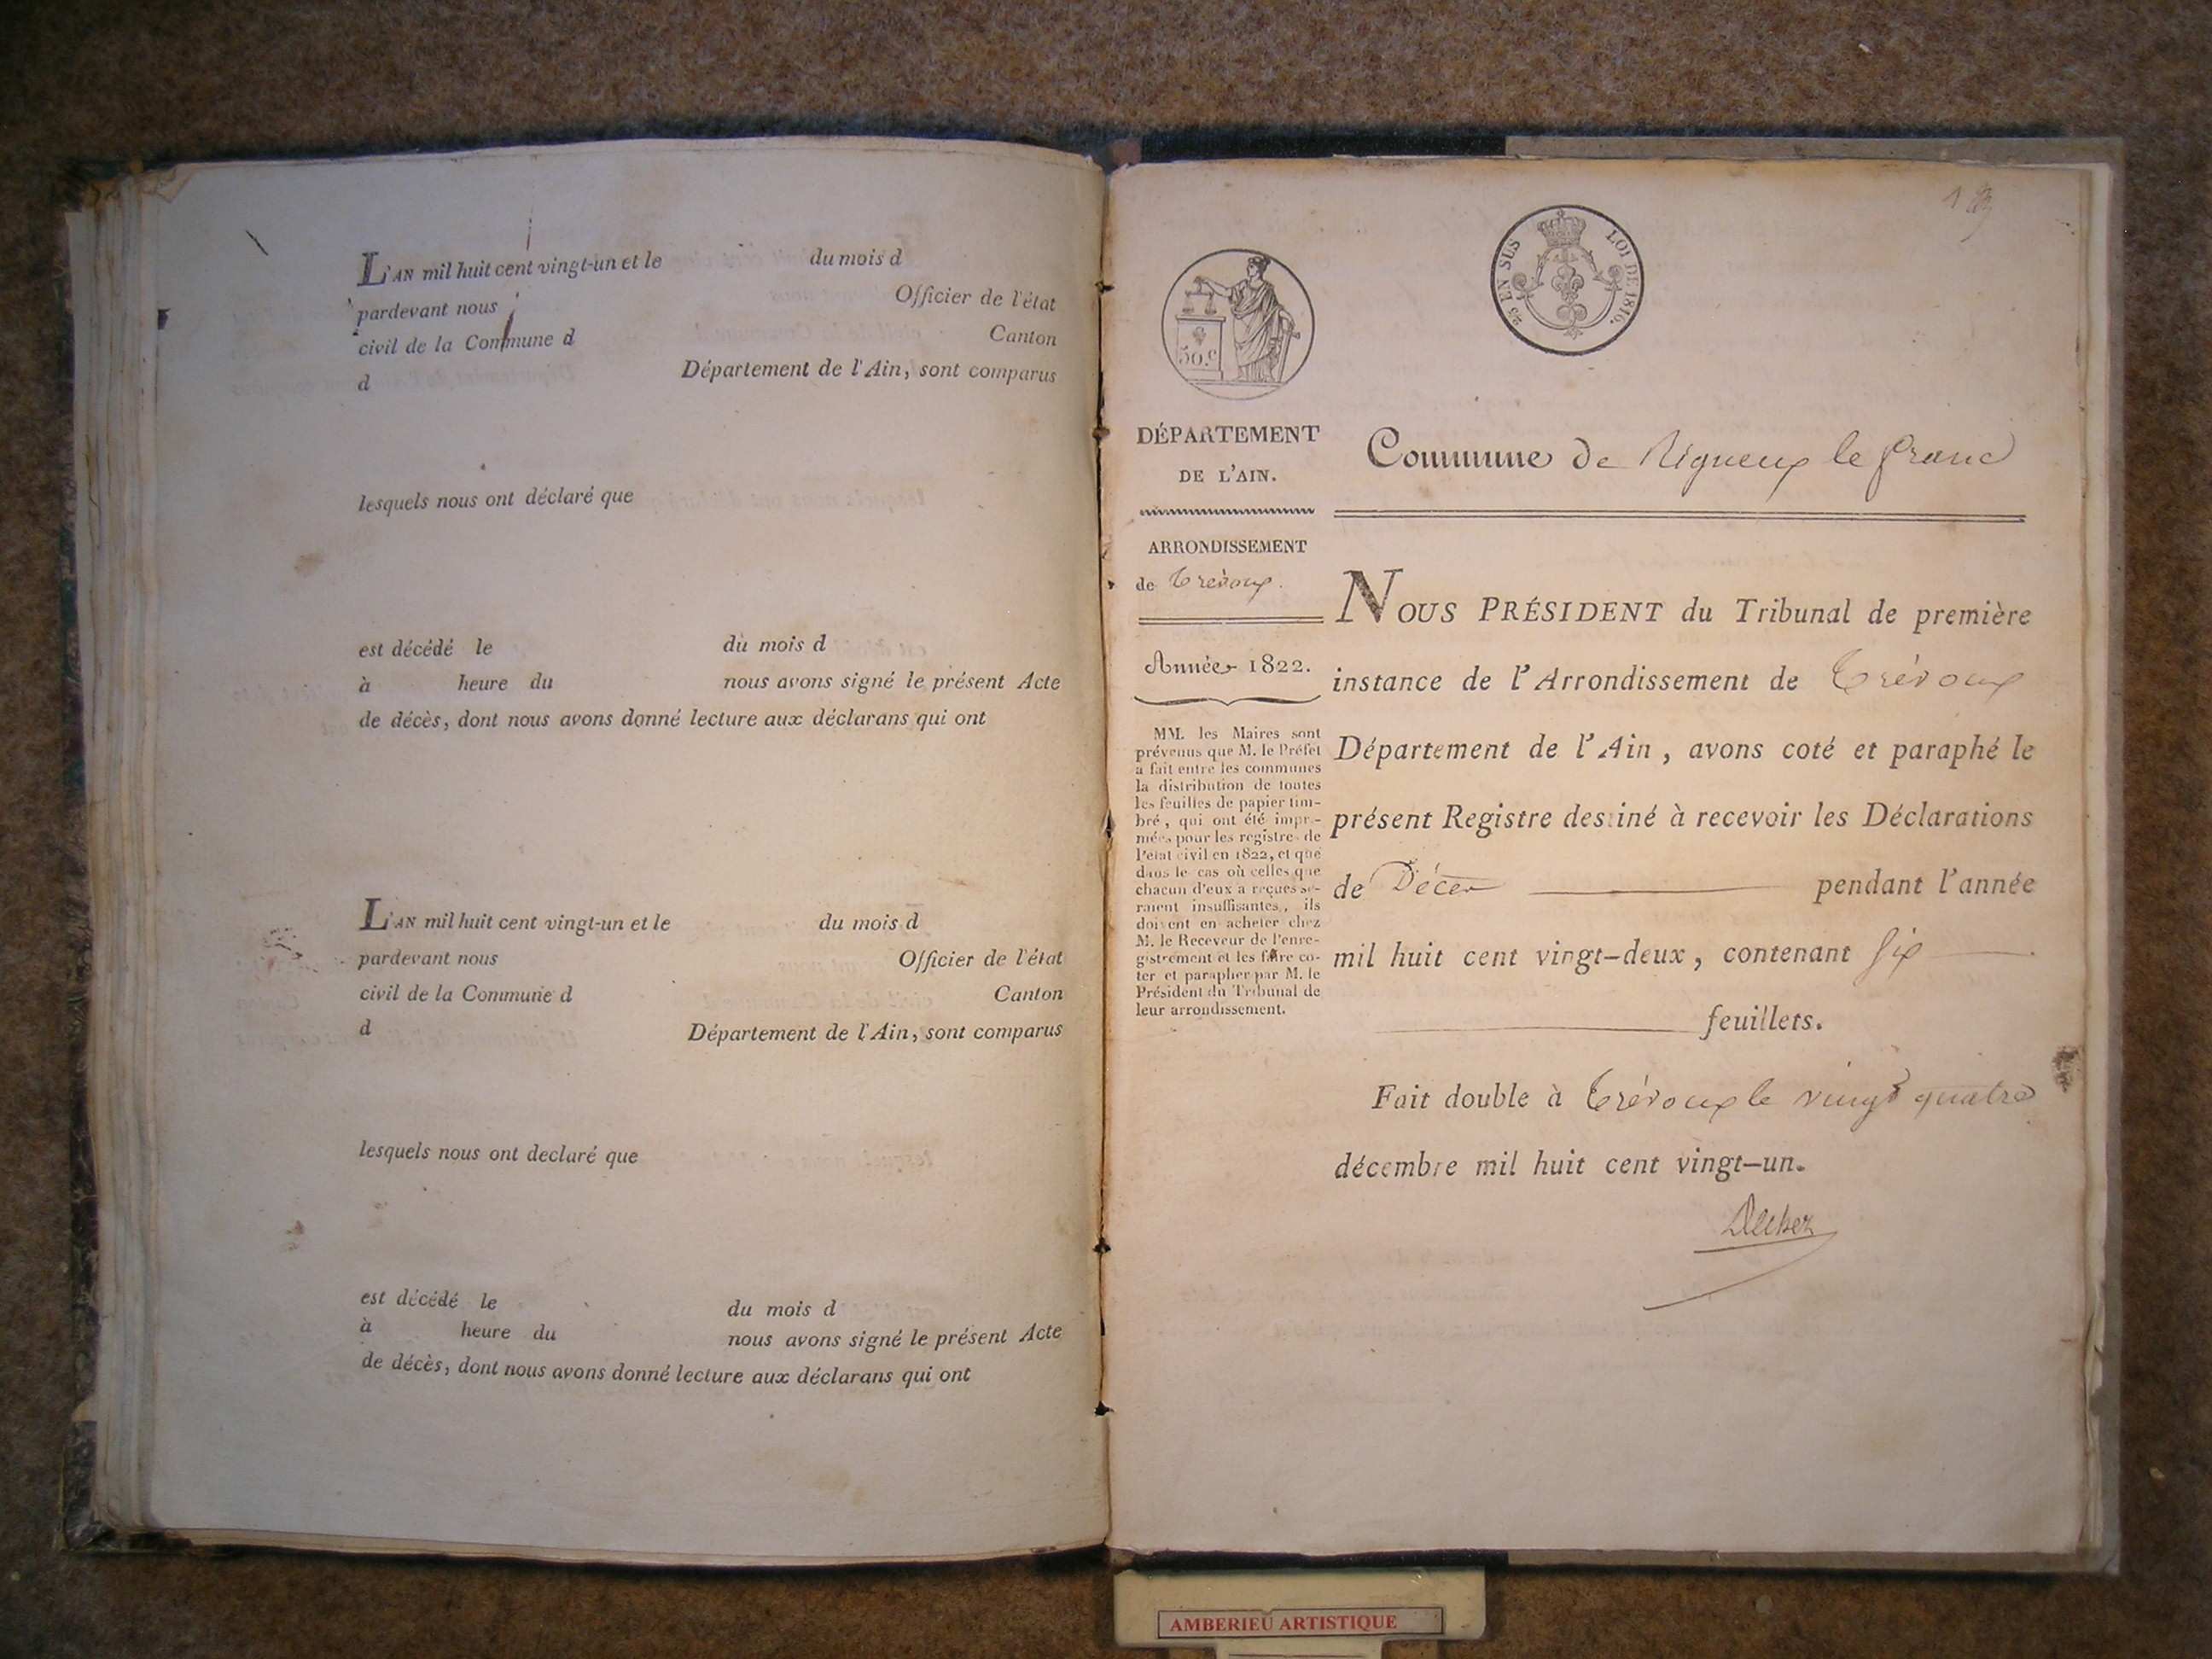 L'AN mil huit cent vingt-un et le du mois d
pardevant nous Officier de l'état
civil de la Commune d Canton
d Département de l'Ain, sont comparus
lesquels nous ont déclaré que
est décédé le du mois d
à heure du nous avons signé le présent Acte
de décès, dont nous avons donné lecture aux déclarans qui ont
L'AN mil huit cent vingt-un et le du mois d
pardevant nous Officier de l'état
civil de la Commune d Canton
d Département de l'Ain, sont comparus
lesquels nous ont declaré que
est décédé le du mois d
à heure du nous avons signé le présent Acte
de décès, dont nous avons donné lecture aux déclarans qui ont
50.c
25 EN SUS LOI DE 1816.
DÉPARTEMENT
DE L'AIN.
ARRONDISSEMENT
de Trévoux.
Année 1822.
MM. les Maires sont
prévenus que M. le Préfet
a fait entre les communes
la distribution de toutes
les feuilles de papier tim-
bré, qui ont été impri-
mées pour les registres de
l'etat civil en 1822, et que
dans le cas où celles que
chacun d'eux a reçues se-
raient insuffisantes, ils
doivent en acheter chez
M. le Receveur de l'enre-
gistrement et les faire co-
ter et parapher par M. le
Président du Tribunal de
leur arrondissement.
Commune de Rigneux le franc
NOUS PRÉSIDENT du Tribunal de première
instance de l'Arrondissement de Trévoux
Département de l'Ain, avons coté et paraphé le
présent Registre destiné à recevoir les Déclarations
de Décès pendant l'année
mil huit cent vingt-deux, contenant six
feuillets.
Fait double à Trévoux le vingt quatre
décembre mil huit cent vingt-un.
AMBERIEU ARTISTIQUE